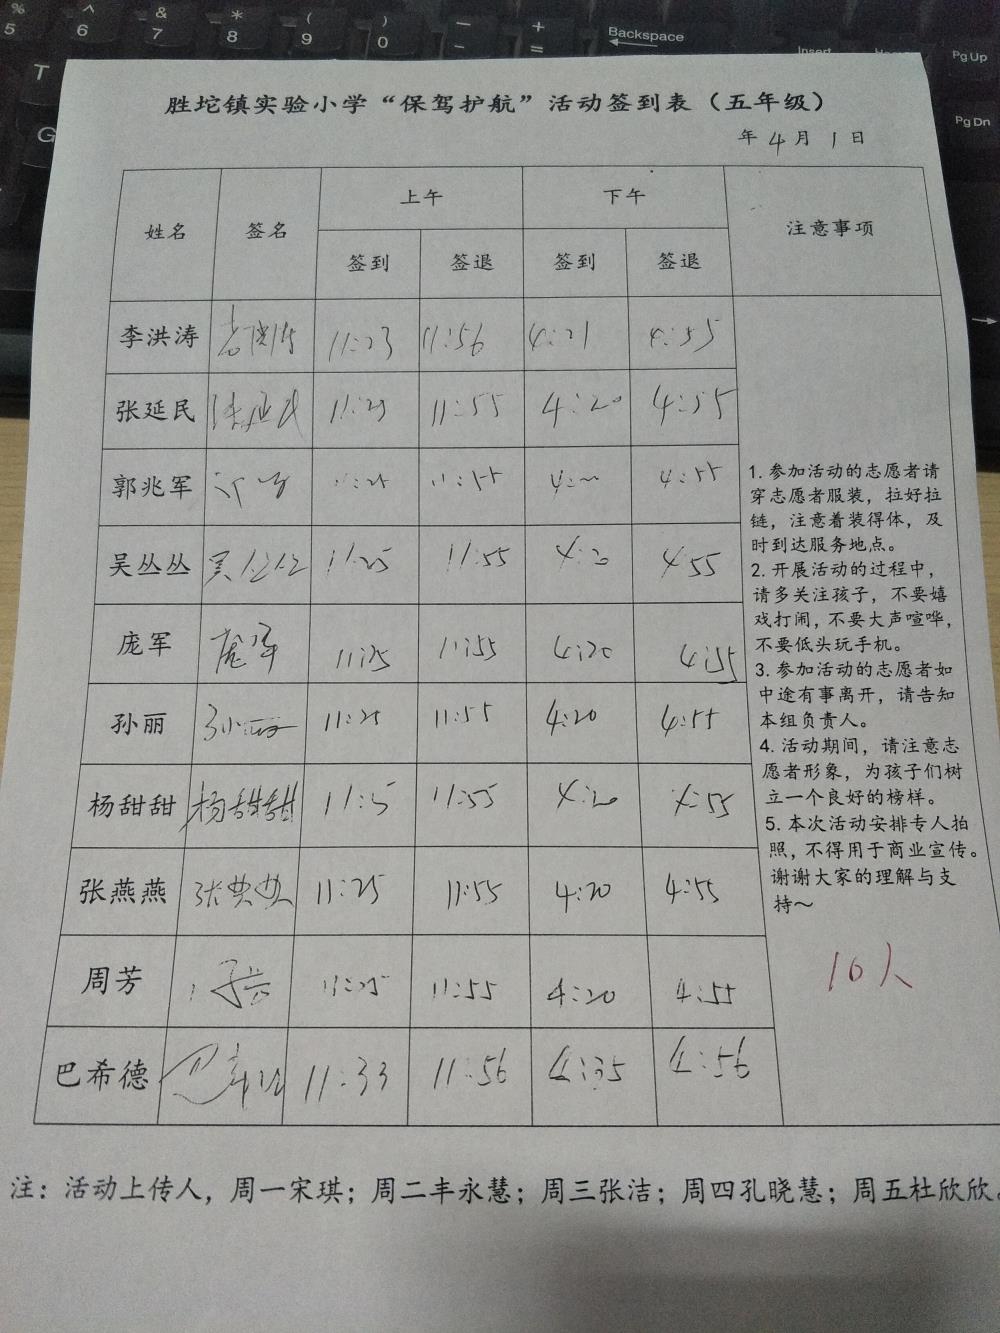 胜坨镇实验小学“保驾护航”活动签到表（五年级）
年 4 月 1 日
姓名 签名 上午 下午 注意事项
签到 签退 签到 签退
李洪涛 11:23 11:56 4:21 4:55
张延民 张延民 11:25 11:55 4:20 4:55
郭兆军 11:25 11:55 4:55
吴丛丛 吴丛丛 11:25 11:55 4:20 4:55
庞军 庞军 11:25 11:55 4:20 4:55
孙丽 孙丽 11:25 11:55 4:20 4:55
杨甜甜 杨甜甜 11:25 11:55 4:20 4:55
张燕燕 张燕燕 11:25 11:55 4:20 4:55
周芳 11:25 11:55 4:20 4:55
巴希德 11:33 11:56 4:35 4:56
1. 参加活动的志愿者请
穿志愿者服装，拉好拉
链，注意着装得体，及
时到达服务地点。
2. 开展活动的过程中，
请多关注孩子，不要嬉
戏打闹，不要大声喧哗，
不要低头玩手机。
3. 参加活动的志愿者如
中途有事离开，请告知
本组负责人。
4. 活动期间，请注意志
愿者形象，为孩子们树
立一个良好的榜样。
5. 本次活动安排专人拍
照，不得用于商业宣传。
谢谢大家的理解与支
持～
10人
注：活动上传人，周一宋琪；周二丰永慧；周三张洁；周四孔晓慧；周五杜欣欣。
% 5
^ 6
& 7
* 8
( 9
) 0
— -
+ =
Backspace
Insert
Pg Up
Pg Dn
T
G